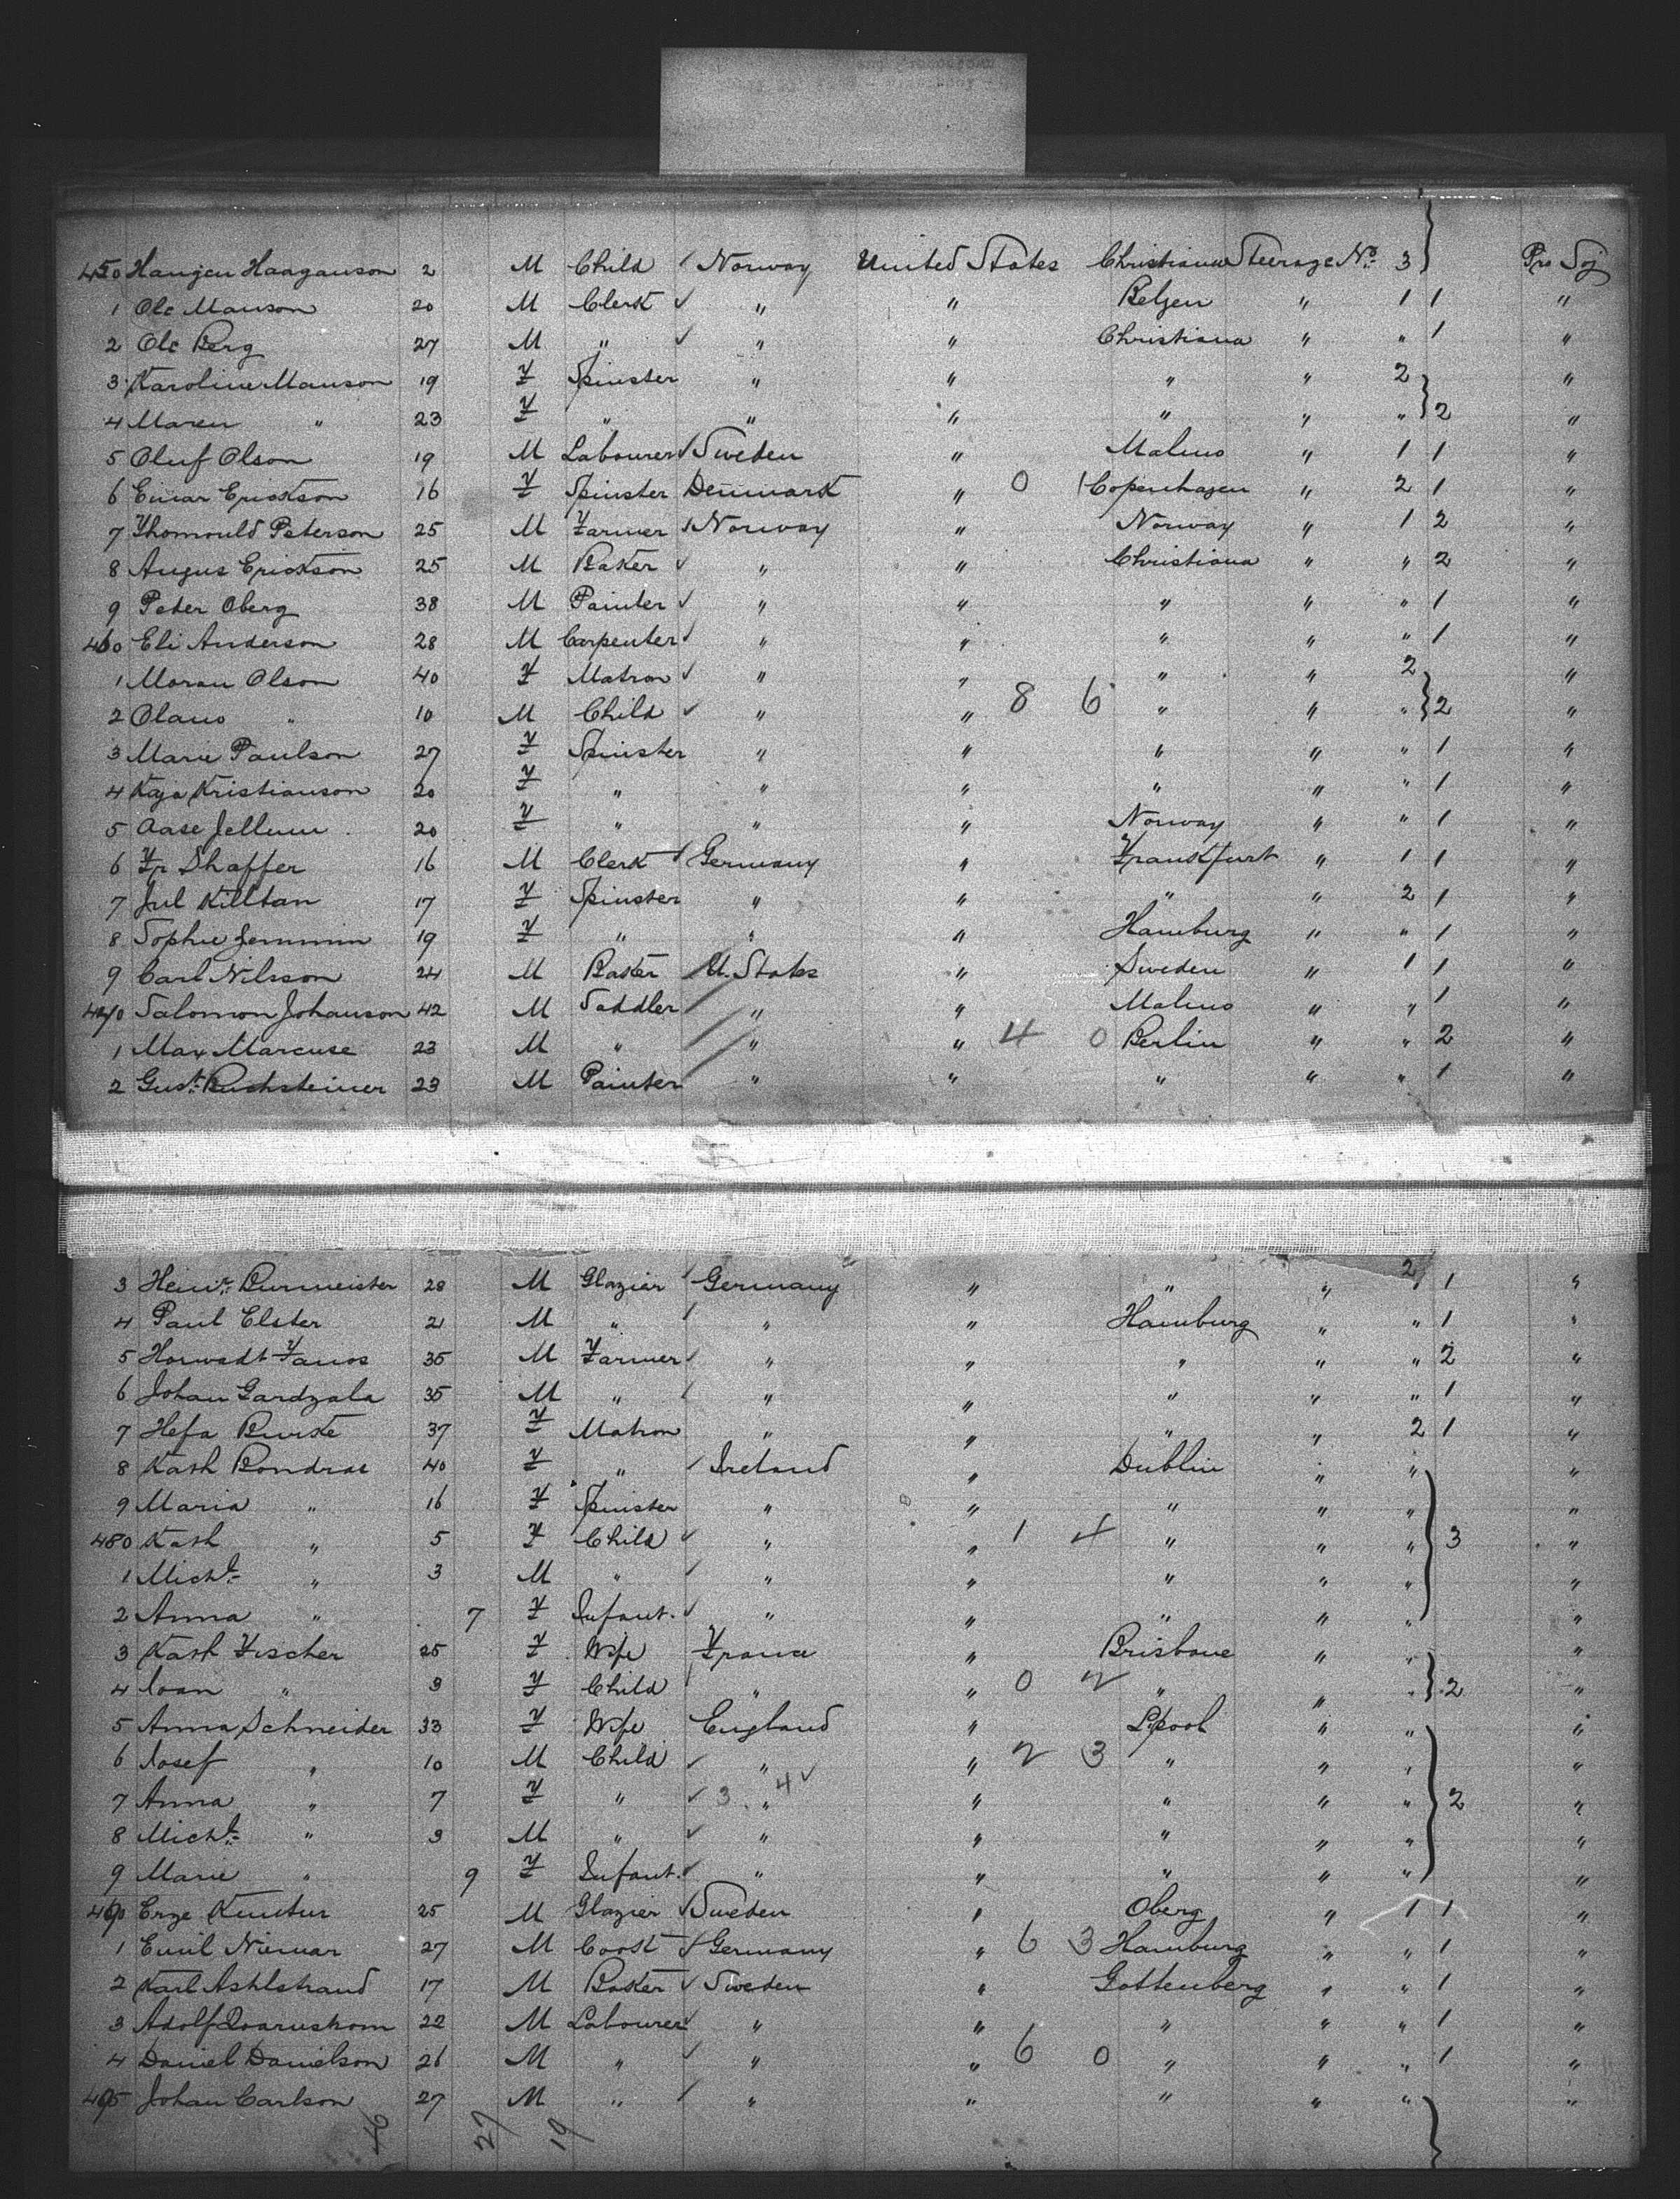 450 Haugen Haaganson 2 M Child Norway United States Christiana Steerage No. 3 Pro Soj
1 Ole Manson 20 M Clerk " " Belgen " 1 1 "
2 Ole Berg 27 M " " " Christiana " " 1 "
3 Karoline Manson 19 F Spinster " " " " 2 "
4 Maren " 23 F " " " " " " 2 "
5 Oluf Olson 19 M Labourer Sweden " Malmo " 1 1 "
6 Einar Erickson 16 F Spinster Denmark " 0 1 Copenhagen " 2 1 "
7 Thomould Peterson 25 M Farmer Norway " Norway " 1 2 "
8 Augus Erickson 25 M Baker " " Christiana " " 2 "
9 Peter Oberg 38 M Painter " " " " " 1 "
460 Eli Anderson 28 M Carpenter " " " " " 1 "
1 Moran Olson 40 F Matron " " " " 2 "
2 Olaus " 10 M Child " " 8 6 " " " 2 "
3 Marie Paulson 27 F Spinster " " " " " 1 "
4 Kaja Kristianson 20 F " " " " " " 1 "
5 Aase Jellum 20 F " " " Norway " " 1 "
6 Fr Shaffer 16 M Clerk Germany " Frankfurt " 1 1 "
7 Jul Killtan 17 F Spinster " " " " 2 1 "
8 Sophie Jemmin 19 F " " " Hamburg " " 1 "
9 Carl Nilsson 24 M Baker U. States " Sweden " 1 1 "
470 Salomon Johanson 42 M Saddler " " Malmo " " 1 "
1 Max Marcuse 23 M " " " 4 0 Berlin " " 2 "
2 Gust. Buchsteiner 23 M Painter " " " " " 1 "
3 Heinr. Burmeister 28 M Glazier Germany " " " 2 1 "
4 Paul Elster 21 M " " " Hamburg " " 1 "
5 Horwadt Fanos 35 M Farmer " " " " " 2 "
6 Johan Gardzala 35 M " " " " " " 1 "
7 Hefa Burke 37 F Matron " " " " 2 1 "
8 Kath Rondrae 40 F " Ireland " Dublin " " "
9 Maria " 16 F Spinster " " " " " "
480 Kath " 5 F Child " " 1 4 " " " 3 "
1 Michl. " 3 M " " " " " " "
2 Anna " 7 F Infant. " " " " " "
3 Kath Fischer 25 F Wife France " Brisbane " " "
4 Joan " 3 F Child " " 0 2 " " " 2 "
5 Anna Schneider 33 F Wife England " Lpool " " "
6 Josef " 10 M Child " " 2 3 " " " "
7 Anna " 7 F " 3 " 4 " " " " 2 "
8 Michl. " 3 M " " " " " " "
9 Marie " 9 F Infant. " " " " " "
490 Erze Kuntur 25 M Glazier Sweden " Oberg " 1 1 "
1 Emil Niemar 27 M Cook Germany " 6 3 Hamburg " " 1 "
2 Karl Ashlstrand 17 M Baker Sweden " Gottenberg " " 1 "
3 Adolf 22 M Labourer " " " " " 1 "
4 Daniel Danielson 26 M " " " 6 0 " " " 1 "
495 Johan Carlson 27 M " " " " " " "
46 27 19